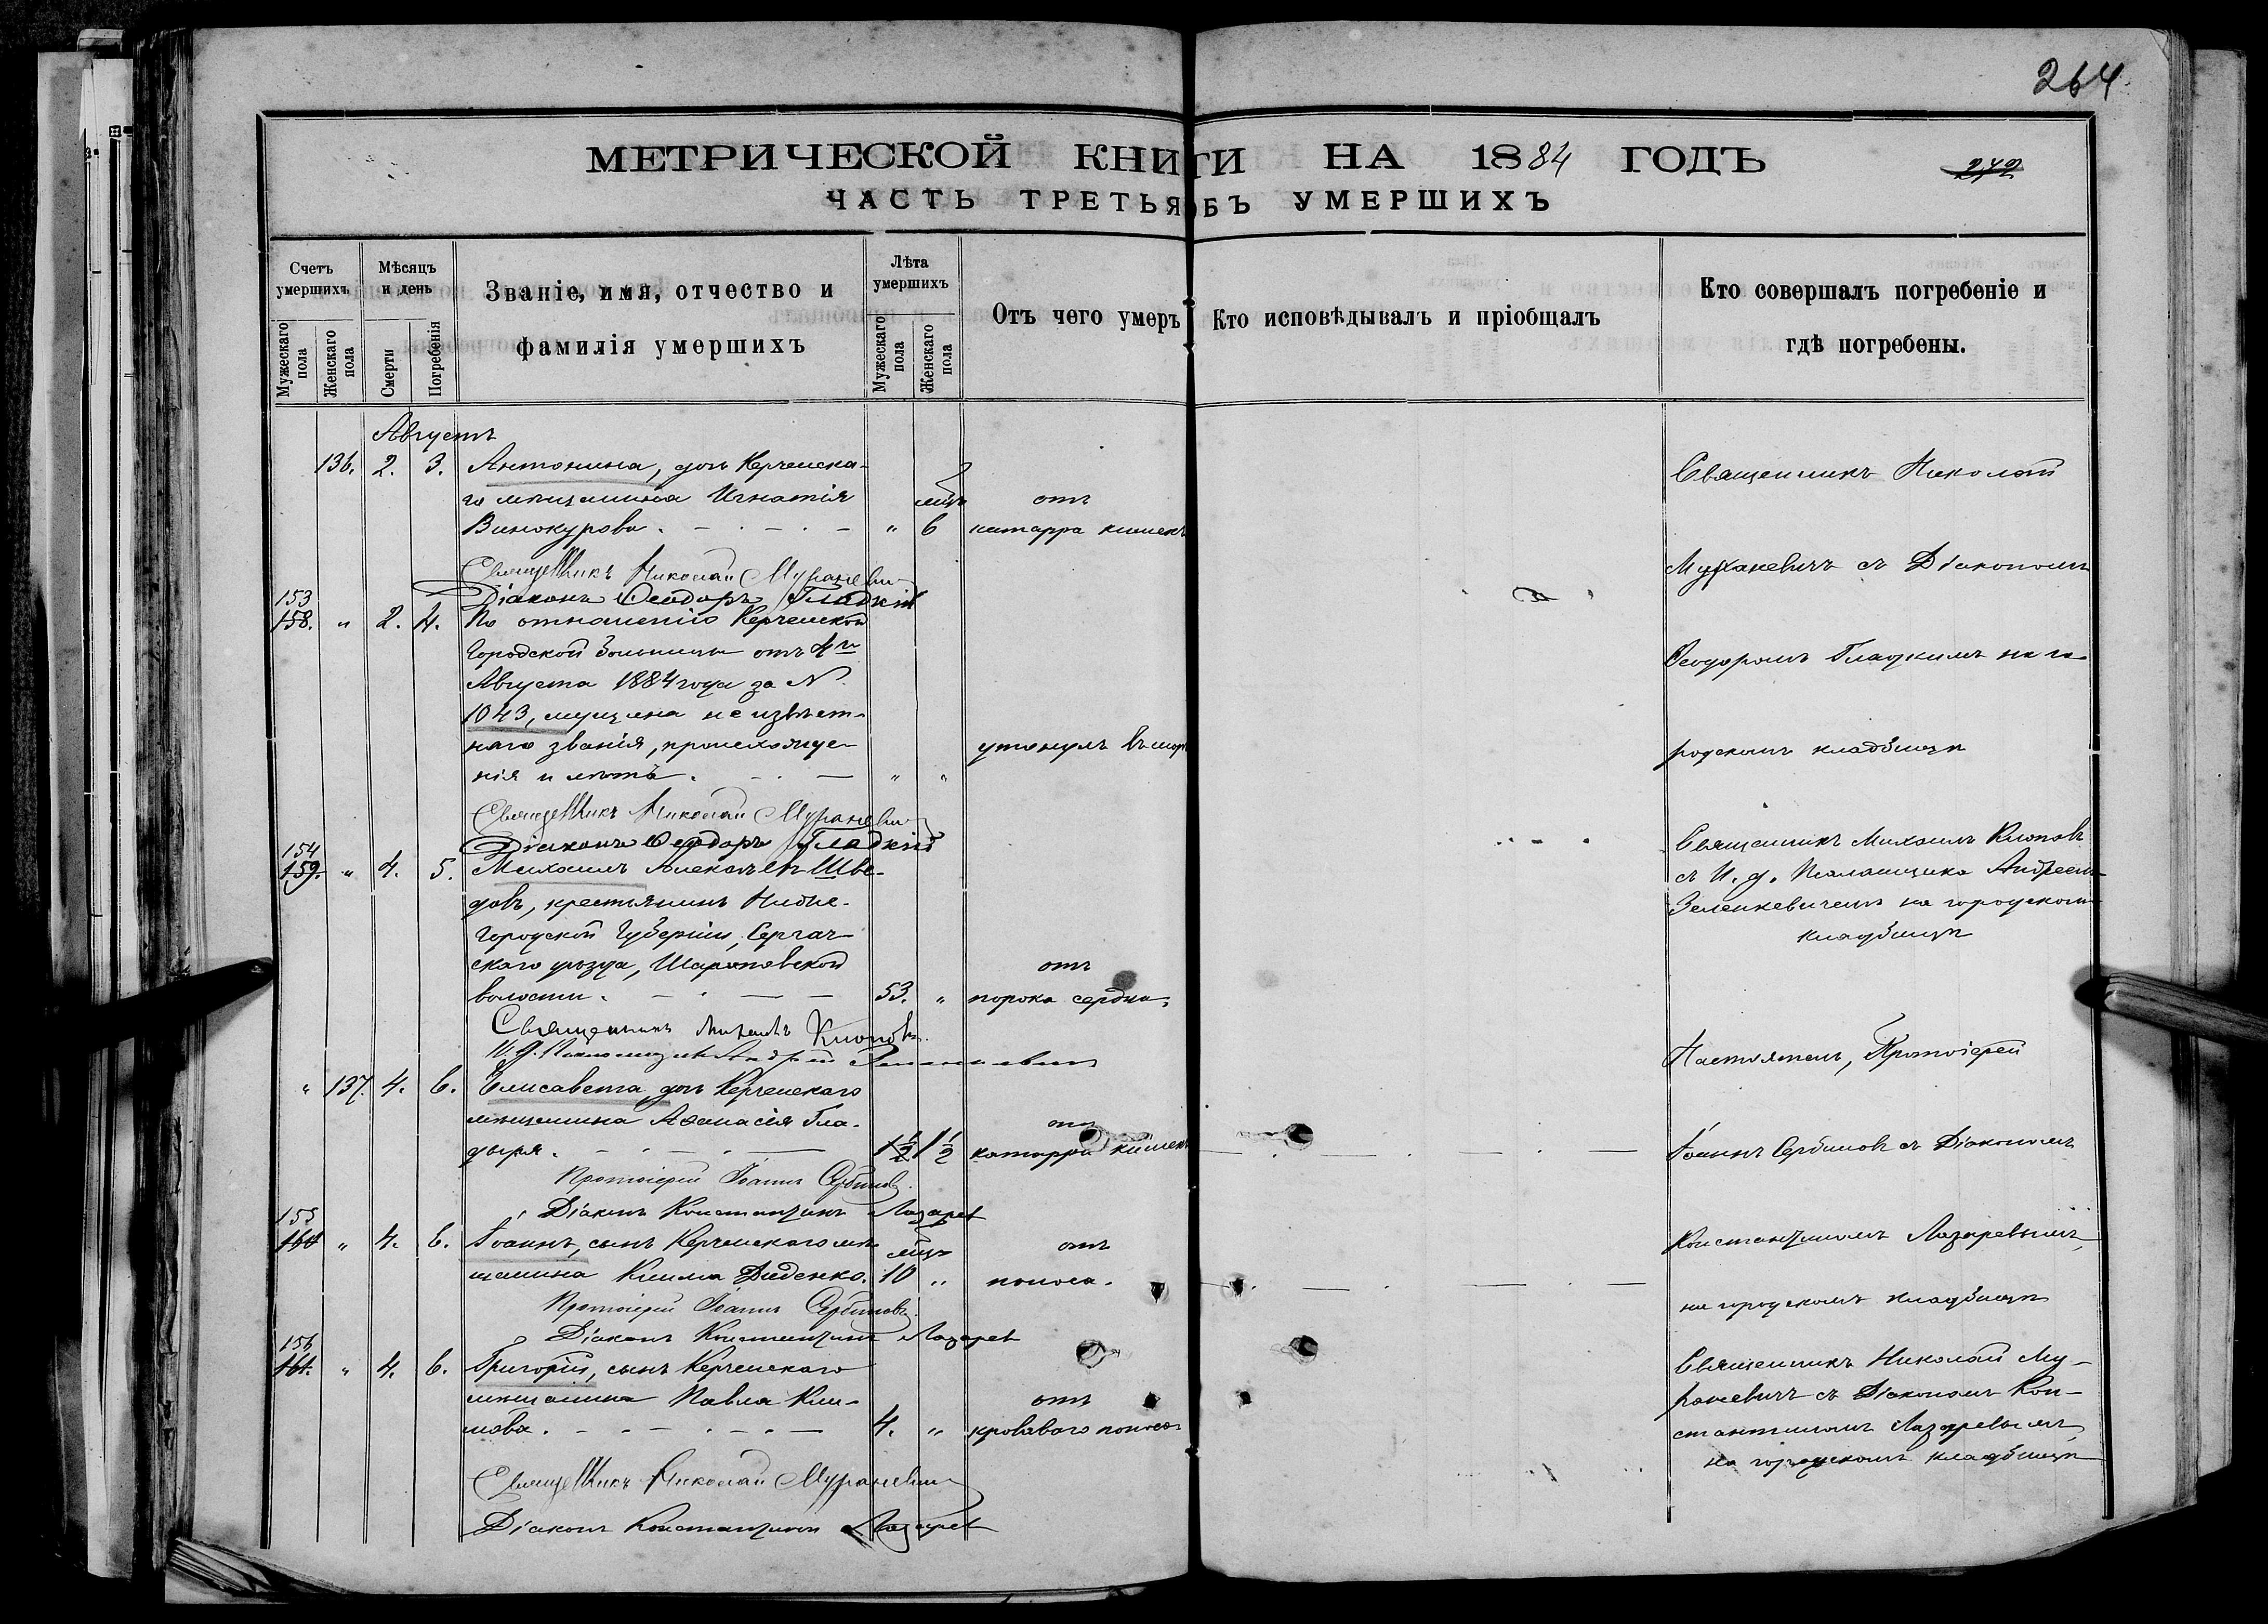 264.
МЕТРИЧЕСКОЙ КНИГИ НА 1884 ГОДЪ
272
ЧАСТЬ ТРЕТЬЯ ОБЪ УМЕРШИХЪ
Счетъ умершихъ
Мужескаго пола
Женскаго пола
Мѣсяцъ и день
Смерти
Погребенія
Званіе, имя, отчество и
фамилія умершихъ
Лѣта умершихъ
Мужескаго пола
Женскаго пола
Отъ чего умеръ
Кто исповѣдывалъ и пріобщалъ
Кто совершалъ погребеніе и
гдѣ погребены.
Августъ
136. 2. 3. Антонина, дочь Керченска-
го мѣщанина Игнатія мѣц отъ
Винокурова. " 6 катарра кишекъ
Священникъ Николай Мураневич
Діаконъ Ѳеодоръ Гладкій
Священникъ Николай
Мураневичъ съ Діакономъ
Ѳеодоромъ Гладкимъ на го-
родскомъ кладбищѣ
153
158. " 2. 4. По отношенію Керченской
Городской больницы отъ 4го
Августа 1884 года за №
1043, мущина неизвѣст-
наго званія, происхожде-
нія и лѣтъ. " " утонулъ въ мор
Священникъ Николай Мураневич
Діаконъ Ѳеодоръ Гладкій
154
159. " 4. 5. Михаилъ Алексѣевъ Шве-
довъ, крестьянинъ Ниже-
городской Губерніи, Сергач-
скаго уѣзда, Шараповской отъ
волости. 53. " порока сердца.
Священникъ Михаилъ Клоповъ
И. д. Псаломщика Андрей Зеленкевич
Священникъ Михаилъ Клоповъ
съ И. д. Псаломщика Андреемъ
Зеленкевичемъ на городскомъ
кладбищѣ
" 137. 4. 6. Елисавета, дочь Керченскаго
мѣщанина Аѳанасія Гла- отъ
дыря. 1½ 1½ катарра кишекъ
Протоіерей Іоаннъ Сербиновъ
Діаконъ Константинъ Лазарев
Настоятель, Протоіерей
Іоаннъ Сербиновъ съ Діакономъ
Константиномъ Лазаревымъ,
на городскомъ кладбищѣ
155
160 " 4. 6. Іоаннъ, сынъ Керченскаго мѣ- мѣц отъ
щанина Клима Диденко. 10 " поноса.
Протоіерей Іоаннъ Сербиновъ
Діаконъ Константинъ Лазарев
156
161. " 4. 6. Григорій, сынъ Керченскаго
мѣщанина Павла Кли- отъ
мова. 4. " кроваваго поноса
Священникъ Николай Мураневич
Діаконъ Константинъ Лазарев
Священникъ Николай Му-
раневичъ съ Діакономъ Кон-
стантиномъ Лазаревымъ,
на городскомъ кладбищѣ